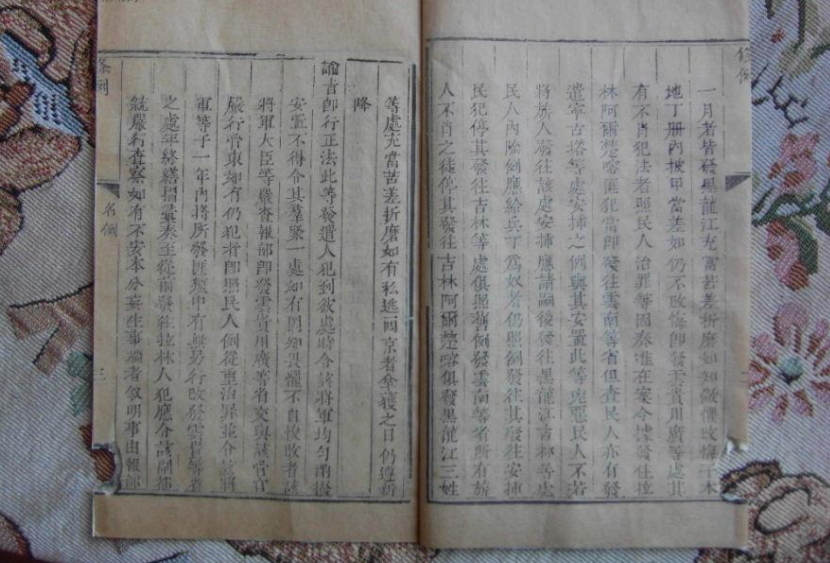 條例
一月者皆發黑龍江充當苦差折磨如知儆懼改悔于本
地丁册内披甲當差如仍不改悔卽發雲貴川廣等處其
有不肖犯法者照民人治罪等因奏准在案今據發往拉
林阿爾楚喀匪犯當卽發往雲南等省但查民人亦有發
遣寧古塔等處安揷之例與其安置此等兇惡民人不若
將旗人發往該處安揷應請嗣後發往黑龍江吉林等處
民人内除例應給兵丁為奴者仍照例發往其發往安揷
民犯停其發往吉林等處俱照舊例發雲南等省所有旗
人不肖之徒停其發往吉林阿爾楚喀俱發黑龍江三姓
等處充當苦差折磨如有私逃回京者拿獲之日仍遵新
降
諭旨卽行正法此等發遣人犯到彼處時令該將軍均勻酌撥
安置不得令其羣聚一處如有罔知畏懼不自悛改者該
將軍大臣等嚴查報部卽發雲貴川廣等省交與該管官
嚴行管束如有仍犯者卽照民人例從重治罪並令該將
軍等于一年内將所發匪類中有無另行改發雲貴等省
之處年終繕摺彙奏至從前發往拉林人犯應令該副都
統嚴行查察如有不安本分滋生事端者叙明事由報部
條例
名例
三